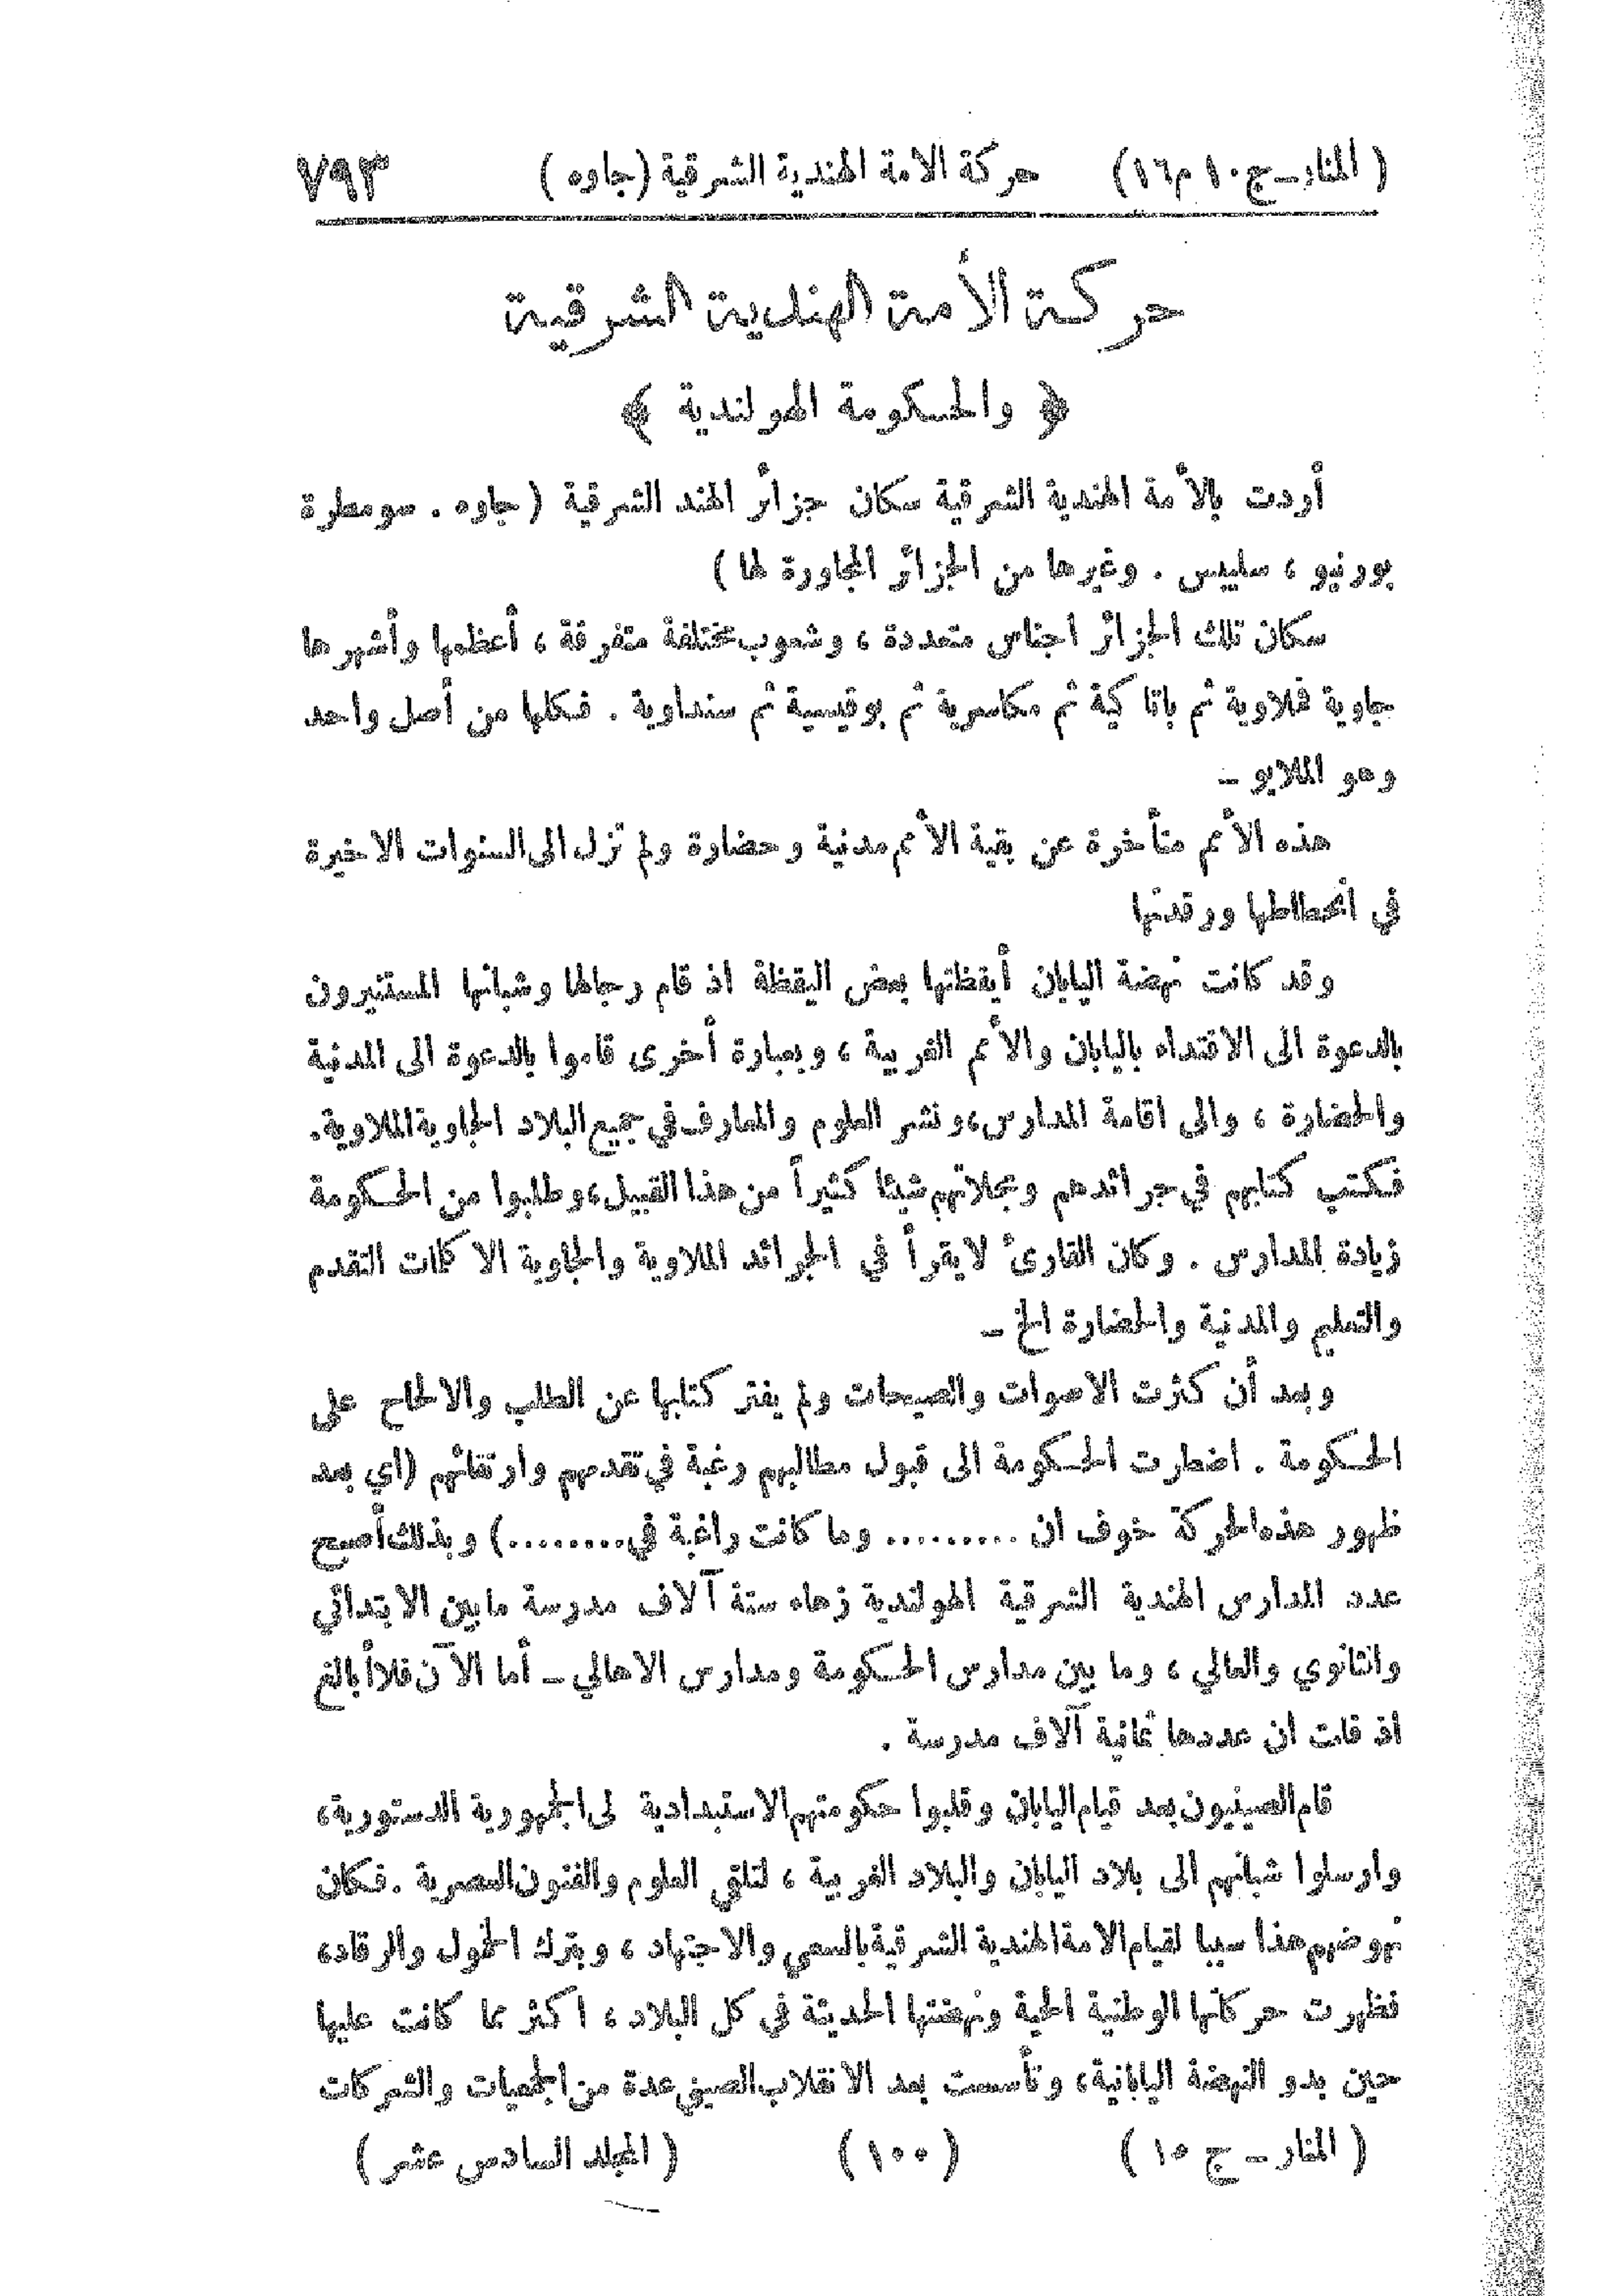 ( المنار ـ ج ١٠ م ١٦ ) حركة الامة الهندية الشرقية ( جاوه ) ٧٩٣
حركة الأمة الهندية الشرقية
﴿ والحكومة الهولندية ﴾
أردت بالأمة الهندية الشرقية سكان جزائر الهند الشرقية ( جاوه . سومطرة
بورنيو ، سليبس . وغيرها من الجزائر المجاورة لها )
سكان تلك الجزائر اجناس متعددة ، وشعوب مختلفة متفرقة ، أعظمها وأشهرها
جاوية فملاوية ثم باتاكية ثم مكاسرية ثم بوقيسية ثم سنداوية . فكلها من أصل واحد
وهو الملايو ـ
هذه الأمم متأخرة عن بقية الأمم مدنية وحضارة ولم تزل الى السنوات الاخيرة
في انحطاطها ورقدتها
وقد كانت نهضة اليابان أيقظتها بعض اليقظة اذ قام رجالها وشبانها المستنيرون
بالدعوة الى الاقتداء باليابان والأمم الغربية ، وبعبارة أخرى قاموا بالدعوة الى المدنية
والحضارة ، والى اقامة المدارس، ونشر العلوم والمعارف في جميع البلاد الجاوية الملاوية.
فكتب كتابهم في جرائدهم ومجلاتهم شيئا كثيراً من هذا القبيل، وطلبوا من الحكومة
زيادة المدارس . وكان القارئ لا يقرأ في الجرائد الملاوية والجاوية الا كلمات التقدم
والتعليم والمدنية والحضارة الخ ـ
وبعد أن كثرت الاصوات والصيحات ولم يفتر كتابها عن الطلب والالحاح على
الحكومة . اضطرت الحكومة الى قبول مطالبهم رغبة في تقدمهم وارتقائهم (اي بعد
ظهور هذه الحركة خوف ان .......... وما كانت راغبة في........) وبذلك أصبح
عدد المدارس الهندية الشرقية الهولندية زهاء ستة آلاف مدرسة ما بين الابتدائي
واثانوي والعالي ، وما بين مدارس الحكومة ومدارس الاهالي ـ أما الآن فلا أبالغ
اذ قلت ان عددها ثمانية آلاف مدرسة .
قام الصينيون بعد قيام اليابان وقلبوا حكومتهم الاستبدادية لى الجمهورية الدستورية،
وارسلوا شبانهم الى بلاد اليابان والبلاد الغربية ، لتلقي العلوم والفنون العصرية . فكان
نهوضهم هذا سببا لقيام الامة الهندية الشرقية بالسعي والاجتهاد ، وبترك الخمول والرقاد،
فظهرت حركاتها الوطنية الحية ونهضتها الحديثة في كل البلاد ، اكثر مما كانت عليها
حين بدو النهضة اليابانية، وتأسست بعد الانقلاب الصيني عدة من الجمعيات والشركات
( المنار ـ ج ١٠ ) ( ١٠٠ ) ( المجلد السادس عشر )